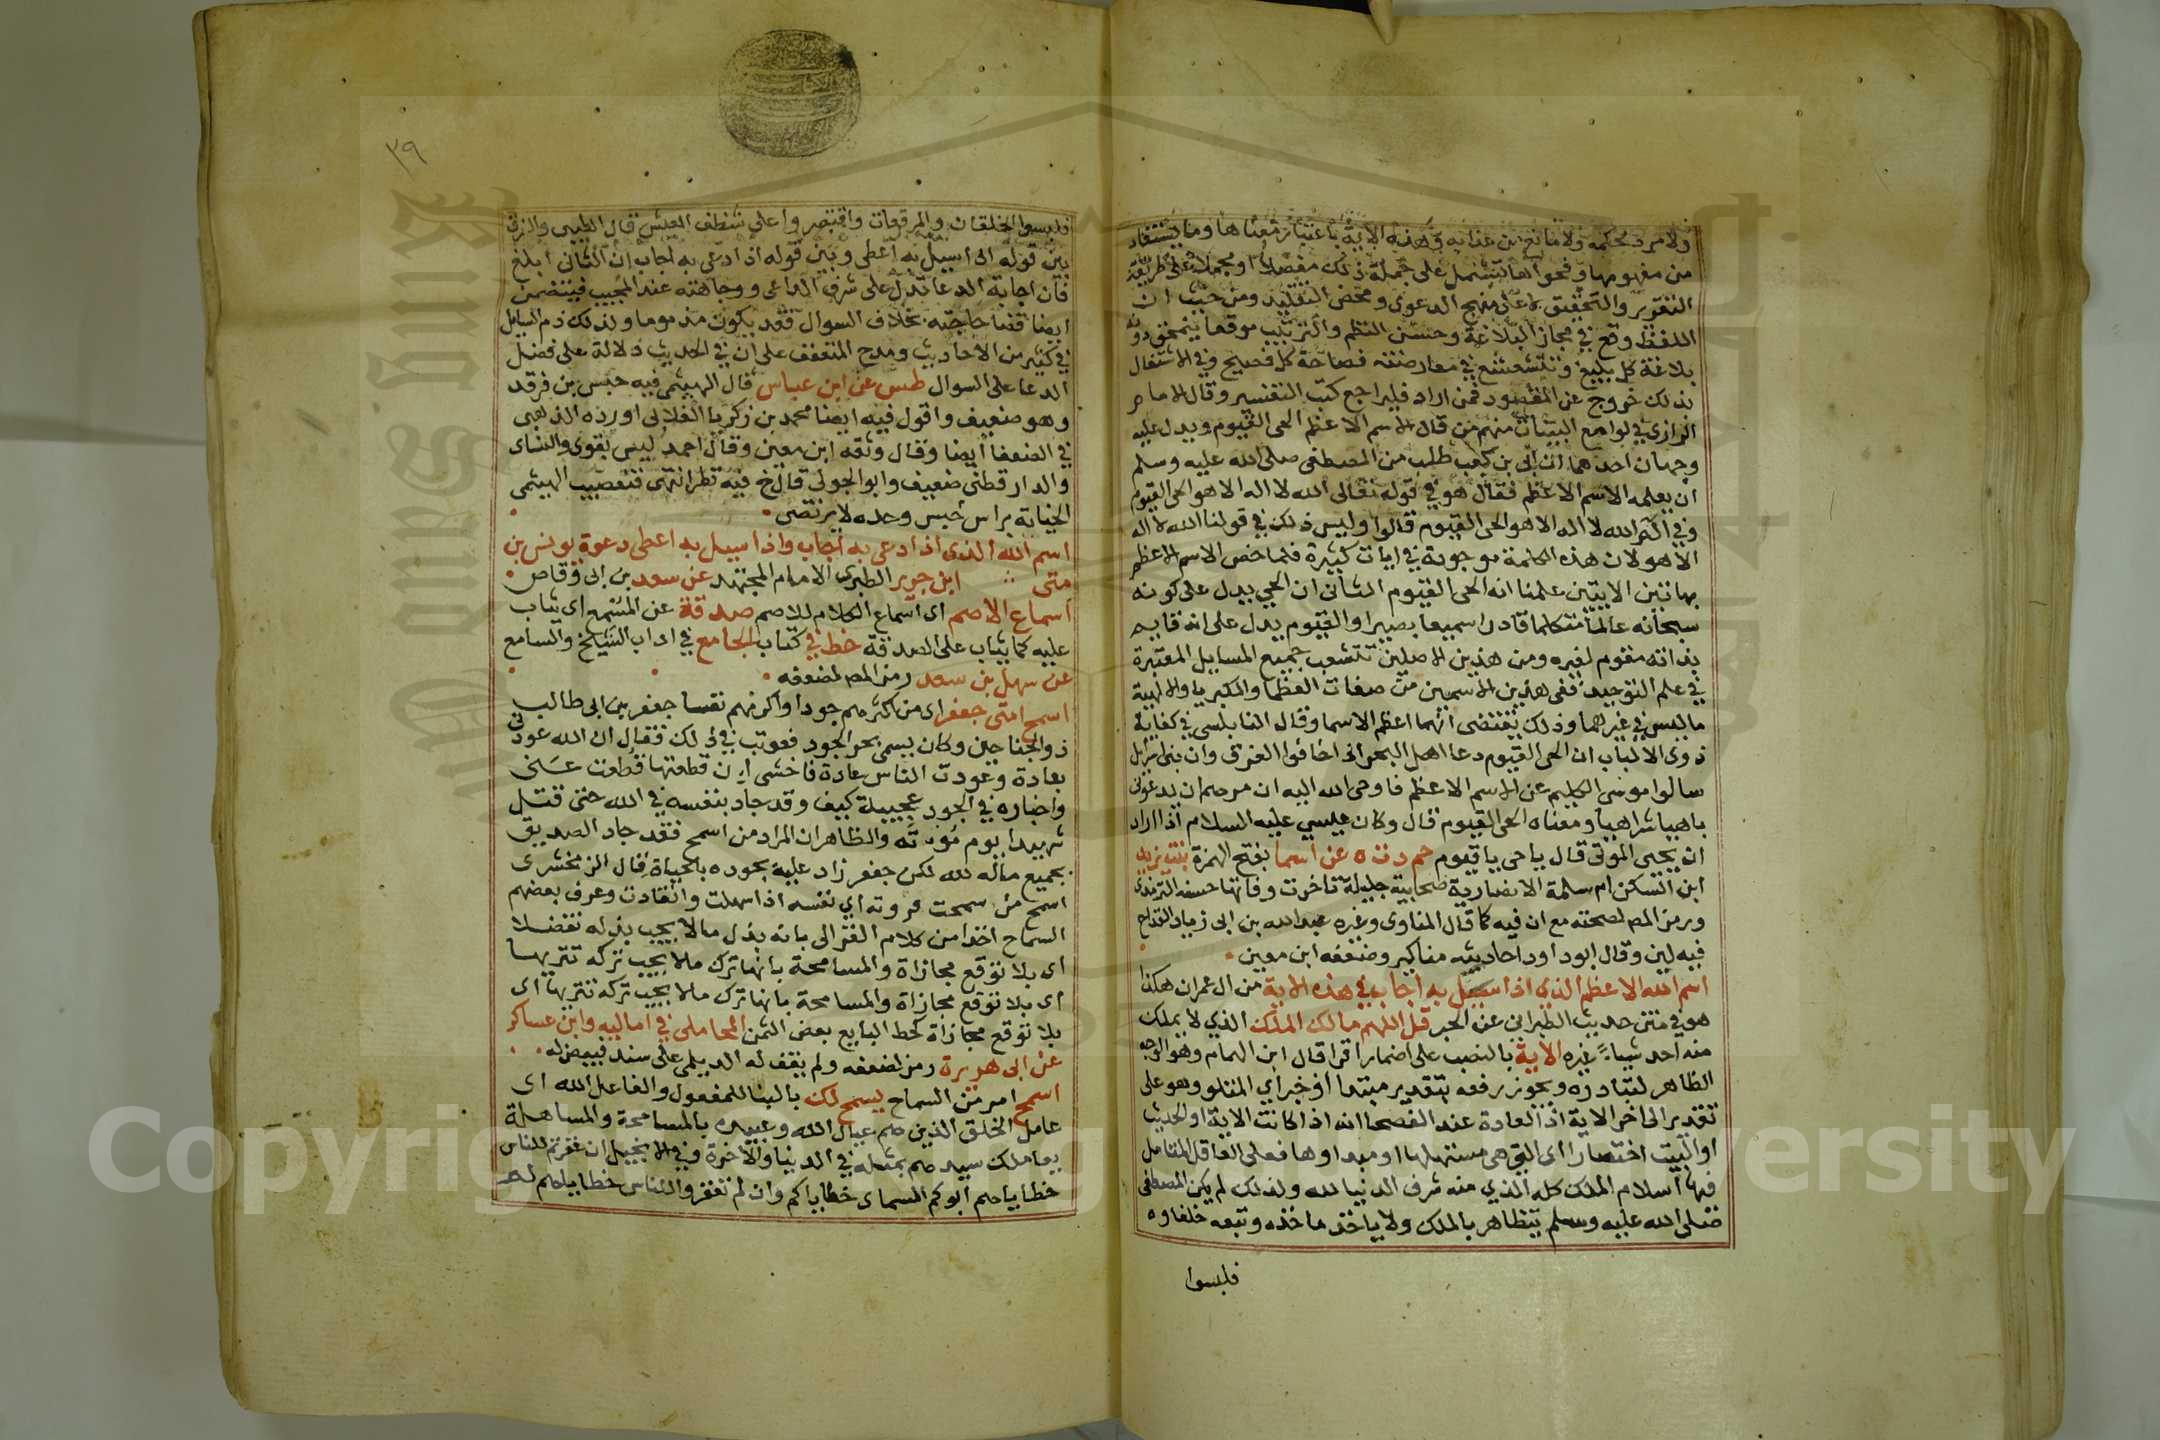 ولا مرد لحكمه ولا مانع من عذابه وهذه الاية باعتبار معناها وما يستفاد
من مفهومها وفحواها تشتمل على جملة ذلك مفصلا او مجملا على طريقة
التقرير والتحقيق لا على منهج الدعوى ومحض التقليد ومن حيث ان
اللفظ وقع في مجاز البلاغة وحسن النظم والترتيب موقعا ينمحق دونه
بلاغة كل بليغ وتتشعشع في معارضته فصاحة كل فصيح وفي الاشتغال
بذلك خروج عن المقصود فمن اراد فليراجع كتب التفسير وقال الامام
الرازي في لوامع البينات منهم من قال الاسم الاعظم الحي القيوم ويدل عليه
وجهان احدهما ان ابي بن كعب طلب من المصطفى صلى الله عليه وسلم
ان يعلمه الاسم الاعظم فقال هو في قوله تعالى الله لا اله الا هو الحي القيوم
وفي الم الله لا اله الا هو الحي القيوم قالوا وليس ذلك في قولنا الله لا اله
الا هو لان هذه الكلمة موجودة في ايات كثيرة فلما خص الاسم الاعظم
بهاتين الايتين علمنا انه الحي القيوم الثاني ان الحي يدل على كونه
سبحانه عالما متكلما قادرا سميعا بصيرا والقيوم يدل على انه قايم
بذاته مقوم لغيره ومن هذين الاصلين تتشعب جميع المسايل المعتبرة
في علم التوحيد ففي هذين الاسمين من صفات العظما والكبريا والالهية
ما ليس في غيرهما وذلك يقتضي انهما اعظم الاسما وقال النابلسي في كفاية
ذوى الالباب ان الحي القيوم دعا اهل البحر اذا خافوا الغرق وان بني اسرايل
سالوا موسى الكليم عن الاسم الاعظم فاوحى الله اليه ان مرهم ان يدعوني
باهيا شراهيا ومعناه الحي القيوم قال وكان عيسى عليه السلام اذا اراد
ان يحيى الموتى قال يا حي يا قيوم حم د ت ه عن اسما بفتح الهمزة بنت يزيد
ابن السكن ام سلمة الانصارية صحابية جليلة تاخرت وفاتها حسنه الترمذى
ورمز المص لصحته مع ان فيه كما قال المناوى وغيره عبد الله بن ابي زياد القداح
فيه لين وقال ابو داود احاديثه مناكير وضعفه ابن معين
اسم الله الاعظم الذي اذا سيل به اجاب في هذه الاية من ال عمران هكذا
هو في متن حديث الطبراني عن الحبر قل اللهم مالك الملك الذي لا يملك
منه احد شياء غيره الاية بالنصب على اضمار اقرا قال ابن الهمام وهو الوجه
الظاهر لتبادره ويجوز رفعه بتقدير مبتدا او خبر اي المتلو وهو على
تقدير الى اخر الاية اذ العادة عند الفصحا انه اذا كانت الاية او الحديث
او البيت اختصارا اى التي هي مستهلها او مبداوها فعلى العاقل المتامل
فيها اسلام الملك كله الذي منه شرف الدنيا لله ولذلك لم يكن المصطفى
صلى الله عليه وسلم يتظاهر بالملك ولا ياخذ ماخذه وتبعه خلفاوه
فلبسوا
٣٩
فلبسوا الخلقان والمرقعات واقتصروا على شظف العيش قال الطيبي والفرق
بين قوله اذا سيل به اعطى وبين قوله اذا دعى به اجاب ان الثاني ابلغ
فان اجابة الدعا تدل على شرف الداعي ووجاهته عند المجيب فيتضمن
ايضا قضا حاجته بخلاف السوال فقد يكون مذموما ولذلك ذم السايل
في كثير من الاحاديث ومدح المتعفف على ان في الحديث دلالة على فضل
الدعا على السوال طس عن ابن عباس قال الهيثمي فيه حبس بن فرقد
وهو ضعيف واقول فيه ايضا محمد بن زكريا الغلابي اورده الذهبي
في الضعفا ايضا وقال وثقه ابن معين وقال احمد ليس بقوى والنساى
والدارقطني ضعيف وابو الجون قال خ فيه نظر انتهى فتعصيب الهيثمي
الجناية براس حبس وحده لا يرتضى
اسم الله الذى اذا دعى به اجاب واذا سيل به اعطى دعوة يونس بن
متى ابن جرير الطبري الامام المجتهد عن سعد بن ابي وقاص
اسماع الاصم اى اسماع الكلام للاصم صدقة عن المسمع اى يثاب
عليه كما يثاب على الصدقة خط في كتاب الجامع في اداب الشيخ والسامع
عن سهل بن سعد رمز المص لضعفه
اسمح امتى جعفر اى من اكثرهم جودا واكرمهم نفسا جعفر بن ابي طالب
ذو الجناحين وكان يسمى بحر الجود فعوتب في ذلك فقال ان الله عودني
بعادة وعودت الناس عادة فاخشى ان قطعتها قطعت عني
واخباره في الجود عجيبة كيف وقد جاد بنفسه في الله حتى قتل
شهيدا يوم موتة والظاهر ان المراد من اسمح فقد جاد الصديق
بجميع ماله لله لكن جعفر زاد عليه بجوده بالحياة قال الزمخشرى
اسمح من سمحت قرونته اي نفسه اذا سهلت وانقادت وعرف بعضهم
السماح اخذا من كلام الغزالي بانه بذل ما لا يجب بذله تفضلا
اى بلا توقع مجازاة والمسامحة بانها ترك ما لا يجب تركه تنزيها
اى بلا توقع مجازاة والمسامحة بانها ترك ما لا يجب تركه تنزيها اى
بلا توقع مجازاة كحط البايع بعض الثمن المحاملي في اماليه وابن عساكر
عن ابي هريرة رمز لضعفه ولم يقف له الديلمي على سند فبيض له
اسمح امر من السماح يسمح لك بالبنا للمفعول والفاعل الله اى
عامل الخلق الذين هم عيال الله وعبيده بالمسامحة والمساهلة
يعاملك سيدهم بمثله في الدنيا والاخرة وفي الانجيل ان غفرتم للناس
خطاياهم ابوكم السماى خطاياكم وان لم تغفروا للناس خطاياهم لم